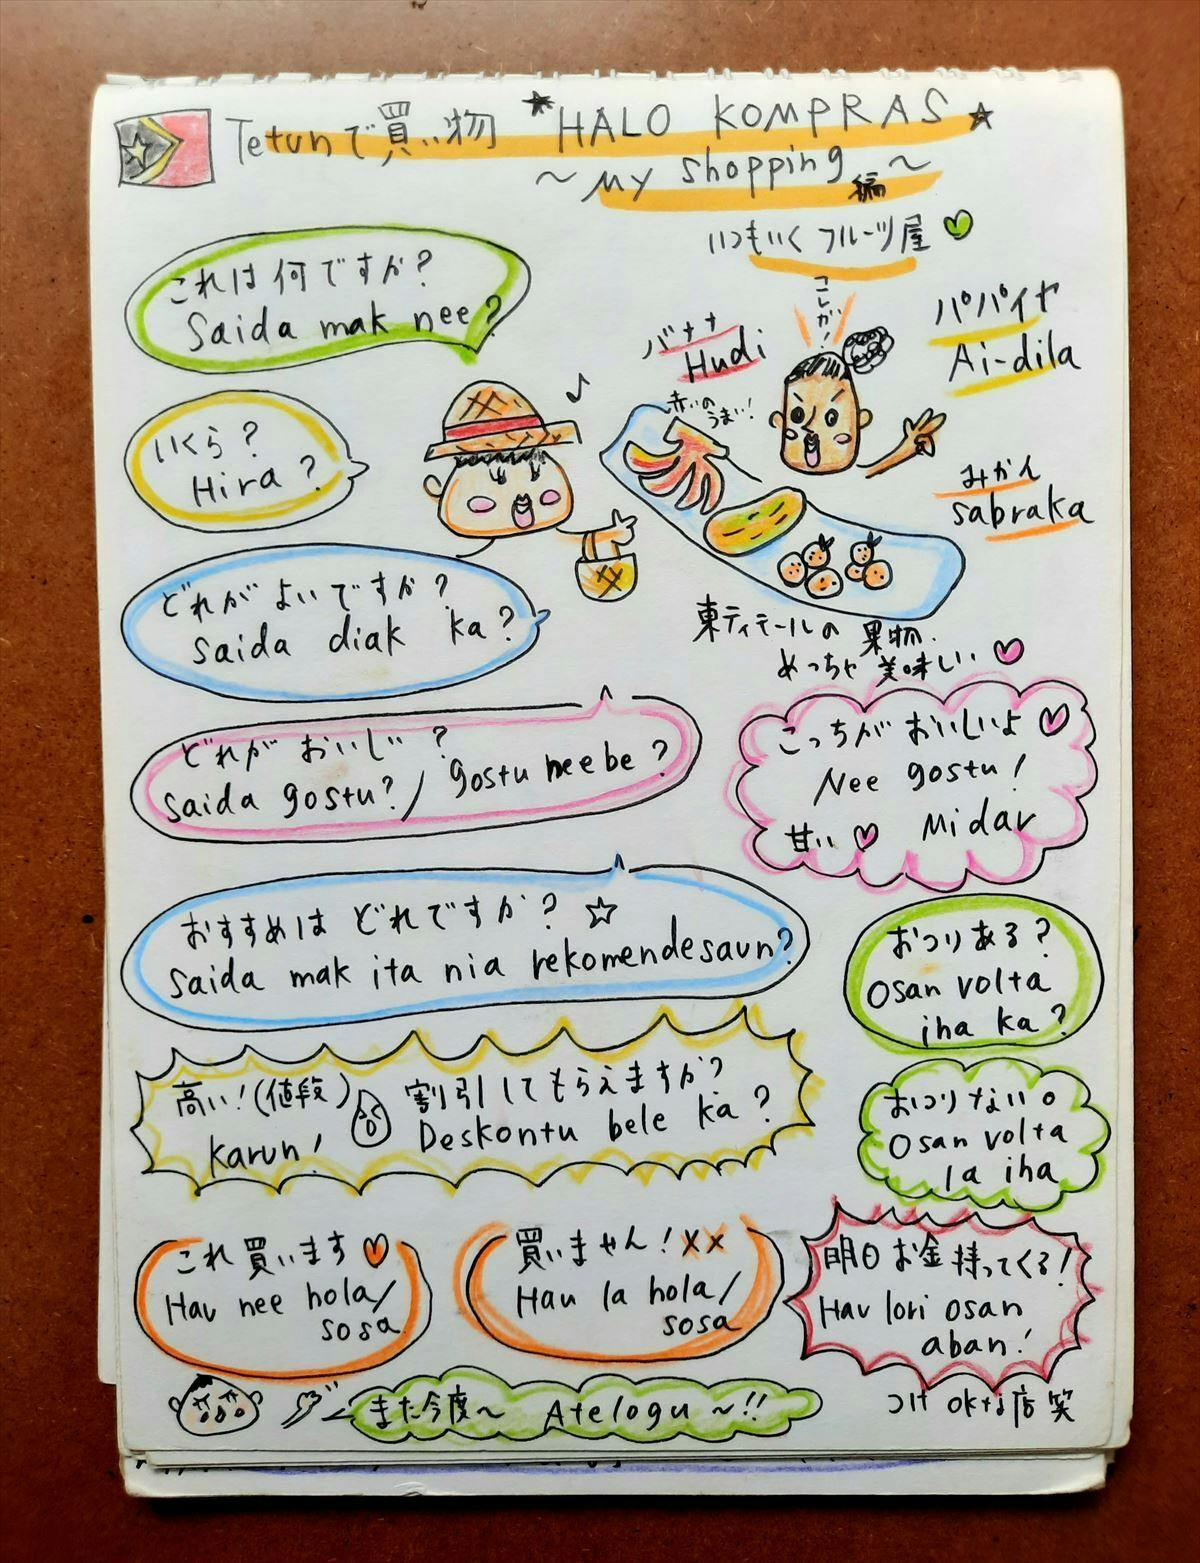 Tetunで買い物 ★HALO KOMPRAS★
～My shopping編～
いつもいくフルーツ屋
これは何ですか?
Saida mak nee?
これが!
バナナ
Hudi
パパイヤ
Ai-dila
赤いの
うまい!
いくら?
Hira?
みかん
sabraka
どれがよいですか?
Saida diak ka?
東ティモールの果物.
めっちゃ美味しい
どれがおいしい?
saida gostu?/gostu neebe?
こっちがおいしいよ
Nee gostu!
甘い Midar
おすすめはどれですか?☆
saida mak ita nia rekomendesaun?
おつりある?
Osan volta
iha ka?
高い!(値段)
Karun!
割引してもらえますか?
Deskontu bele ka?
おつりない。
Osan volta
la iha
これ買います
Hau nee hola/
sosa
買いません!××
Hau la hola/
sosa
明日お金持ってくる!
Hau lori osan
aban!
また今度～ Atelogu～!!
つけokな店 笑